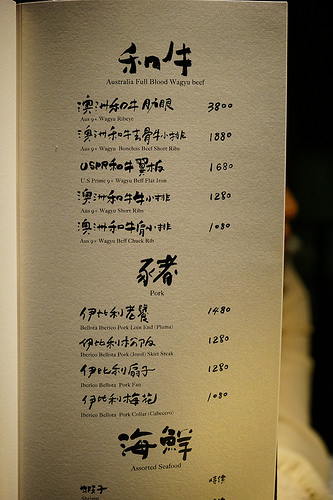 和牛
Australia Full Blood Wagyu beef
澳洲和牛肋眼 3800
Aus 9+ Wagyu Ribeye
澳洲和牛去骨牛小排 1880
Aus 9+ Wagyu Bonelses Beef Short Ribs
USPR和牛翼板 1680
U.S Prime 9+ Wagyu Beff Flat Iron
澳洲和牛牛小排 1280
Aus 9+ Wagyu Short Ribs
澳洲和牛肩小排 1080
Aus 9+ Wagyu Beff Chuck Rib
豬
Pork
伊比利老饕 1480
Bellota Iberico Pork Loin End (Pluma)
伊比利松阪 1280
Iberico Bellota Pork (Jowl) Skirt Steak
伊比利扇子 1280
Iberico Bellota Pork Fan
伊比利梅花 1080
Iberico Bellota Pork Collar (Cabecero)
海鮮
Assorted Seafood
蝦子 時價
Shrimp